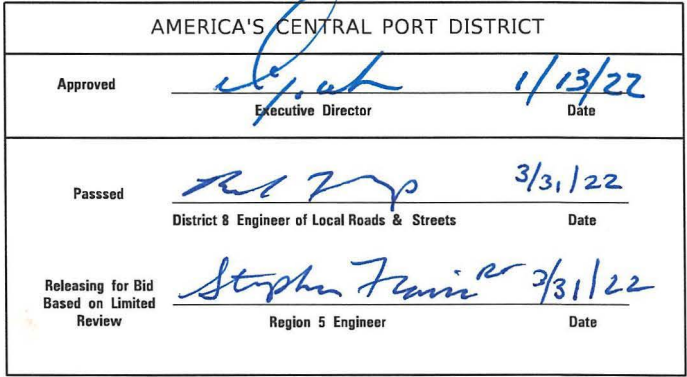 AMERICA'S CENTRAL PORT DISTRICT
Approved 1/13/22
Executive Director Date
Passsed 3/31/22
District 8 Engineer of Local Roads & Streets Date
Releasing for Bid
Based on Limited
Review Stephen 3/31/22
Region 5 Engineer Date